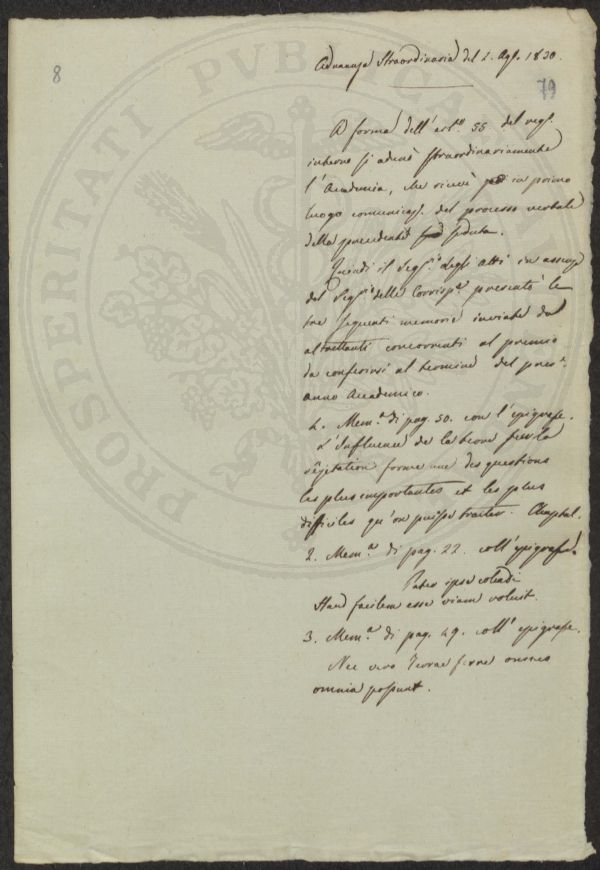 8
Adunanza Straordinaria del 2. Ago. 1830.
79
A forma dell'art.º 55 del reg.
interno si adunò straordinariamente
l'Accademia, che ricevè in primo
luogo comunicaz. del processo verbale
della precedente seduta.
Quindi il Seg.º degli Atti in assenza
del Seg.º delle Corrisp.e presentò le
tre seguenti memorie inviate da
altrettanti concorrenti al premio
da conferirsi al termine del pres.e
anno Accademico.
1. Mem.a di pag. 50. con l'epigrafe.
L'influence de la terre sur la
végétation forme une des questions
les plus importantes et les plus
difficiles qu'on puisse traiter. Chaptal.
2. Mem.a di pag. 22. coll'epigrafe.
Pater ipse colendi
Haud facilem esse viam voluit.
3. Mem.a di pag. 49. coll'epigrafe.
Nec vero Terrae ferre omnes
omnia possunt.
PROSPERITATI PUBLICAE